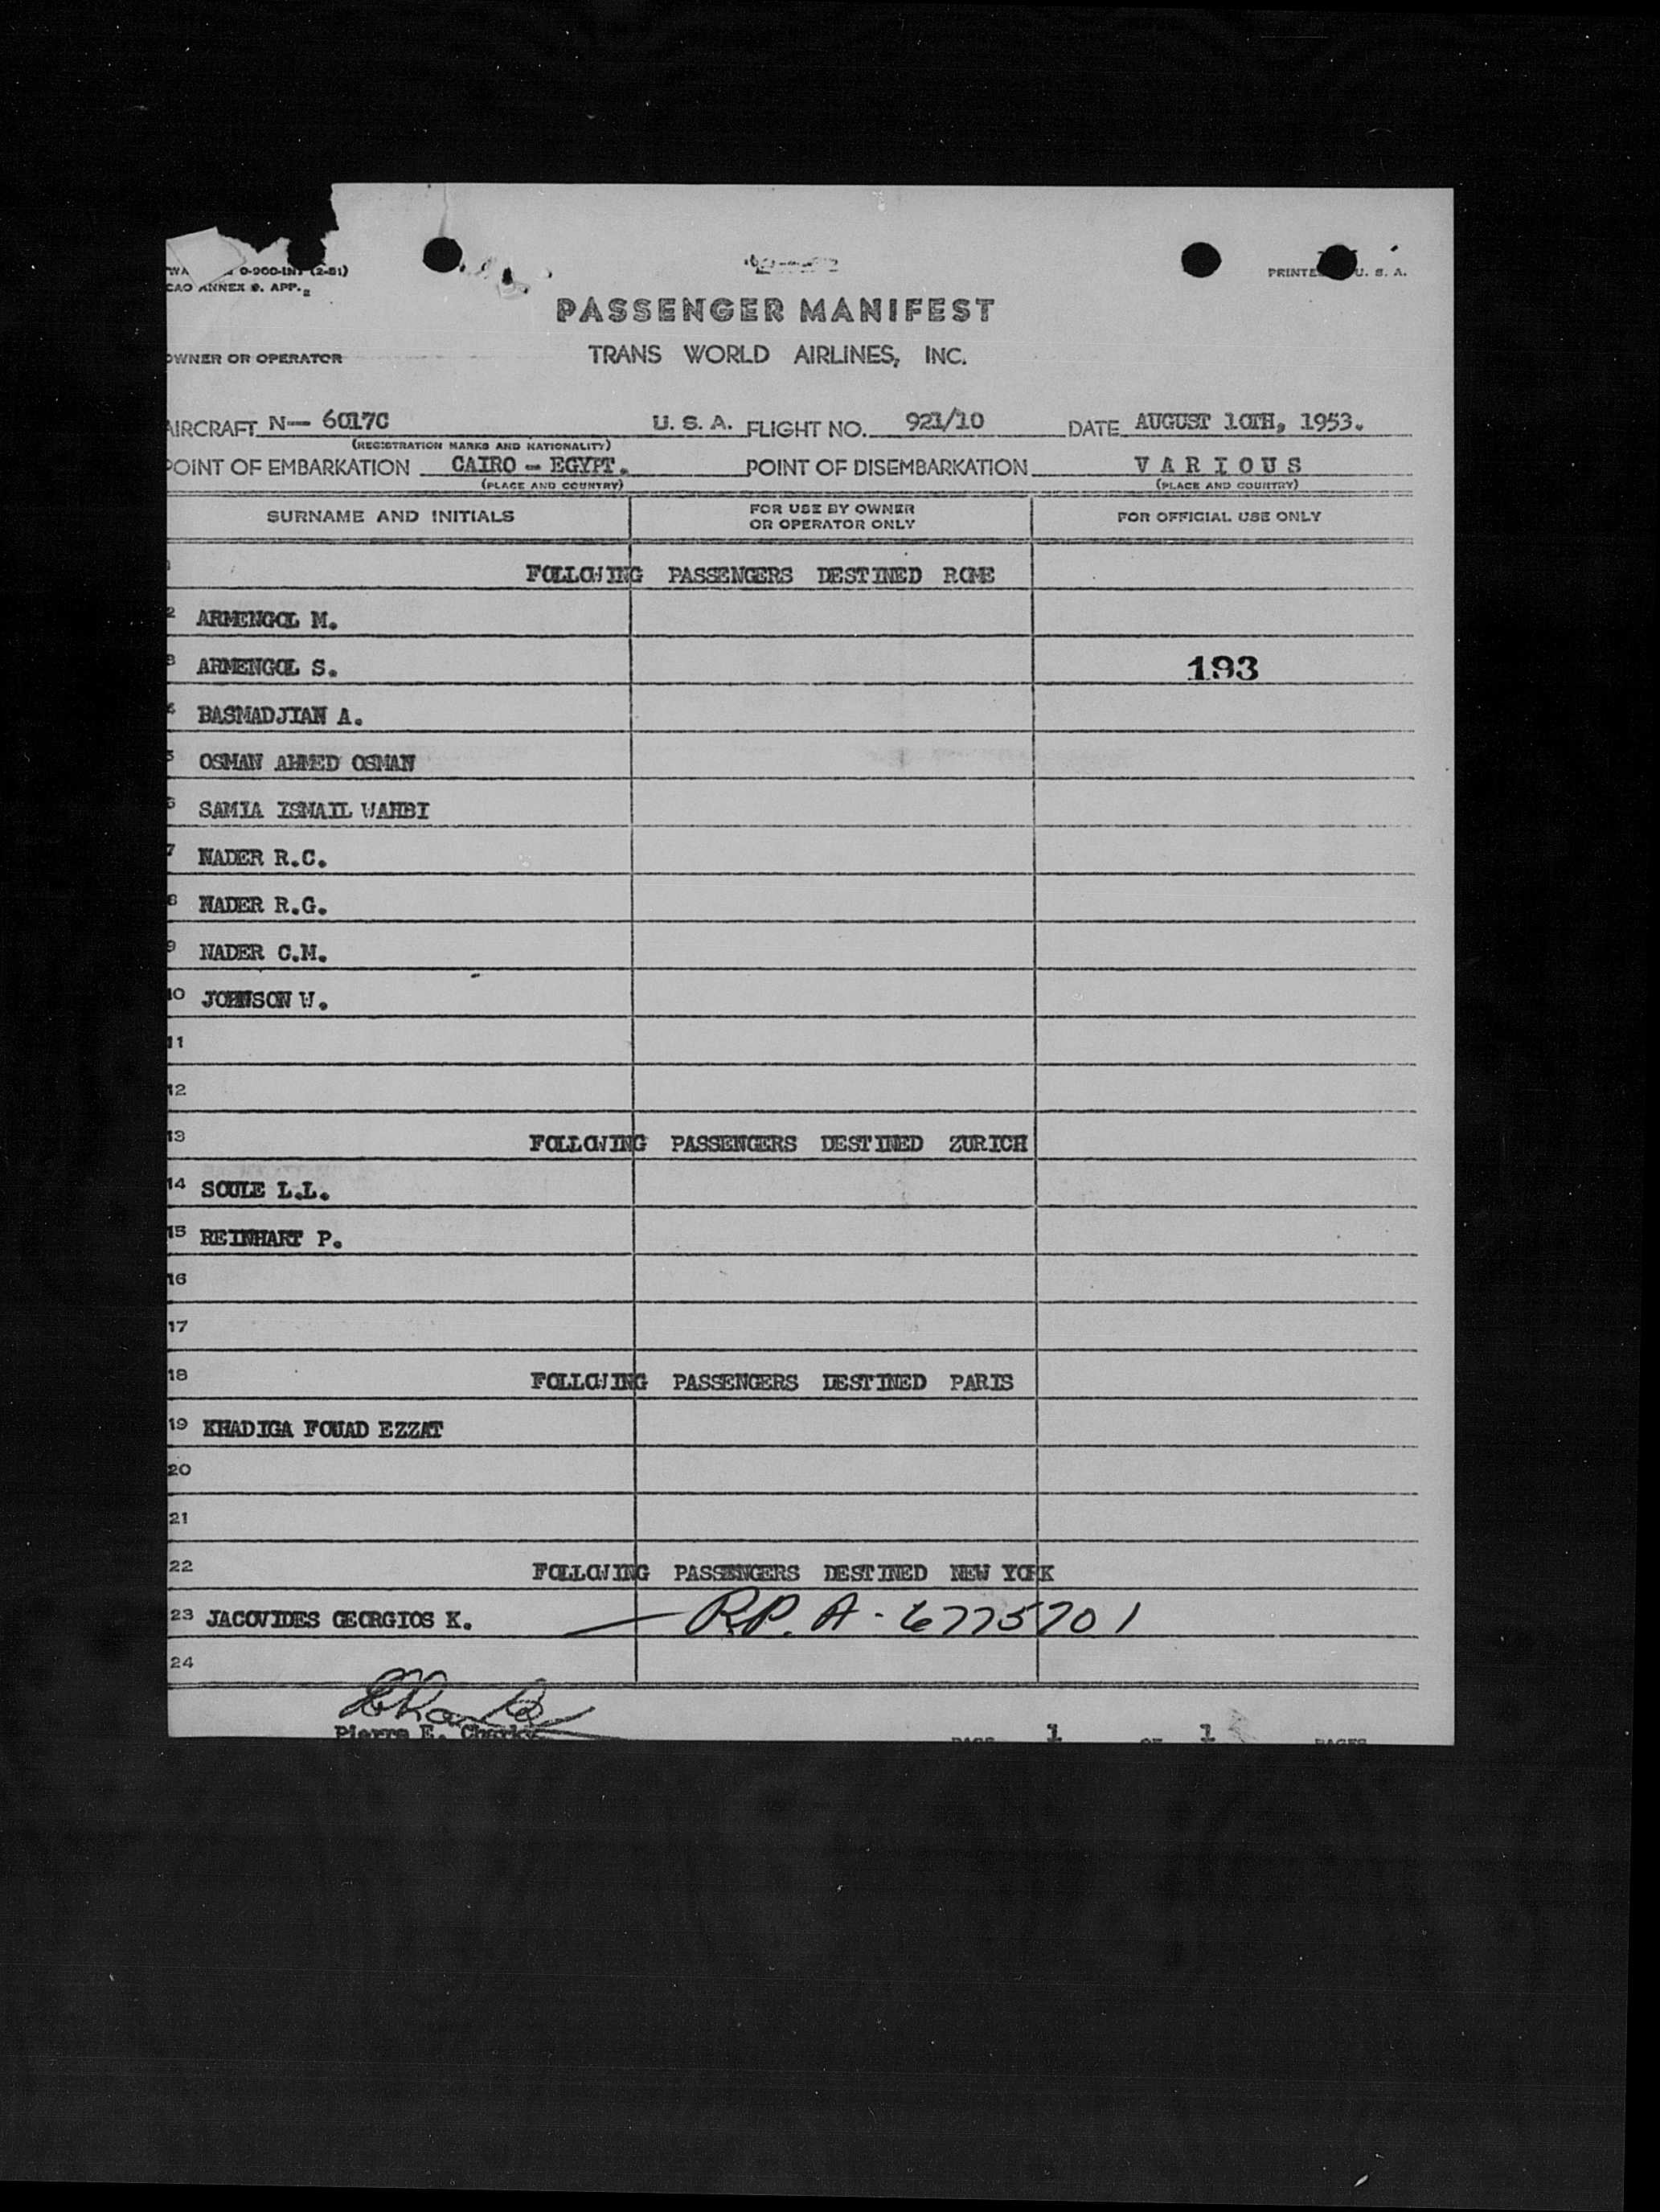 0-900-INT (2-51)
CAO ANNEX 9. APP. 2
PRINTE U. S. A.
PASSENGER MANIFEST
OWNER OR OPERATOR TRANS WORLD AIRLINES, INC.
AIRCRAFT N-- 6017C U. S. A. FLIGHT NO. 921/10 DATE AUGUST 10TH, 1953.
(REGISTRATION MARKS AND NATIONALITY)
POINT OF EMBARKATION CAIRO - EGYPT. POINT OF DISEMBARKATION V A R I O U S
(PLACE AND COUNTRY) (PLACE AND COUNTRY)
SURNAME AND INITIALS FOR USE BY OWNER OR OPERATOR ONLY FOR OFFICIAL USE ONLY
FOLLOWING PASSENGERS DESTINED ROME
2 ARMENGOL M.
3 ARMENGOL S. 193
4 BASMADJIAN A.
5 OSMAN AHMED OSMAN
6 SAMIA ISMAIL WAHBI
7 NADER R.C.
8 NADER R.G.
9 NADER C.M.
10 JOHNSON W.
11
12
13 FOLLOWING PASSENGERS DESTINED ZURICH
14 SOULE L.L.
15 REINHART P.
16
17
18 FOLLOWING PASSENGERS DESTINED PARIS
19 KHADIGA FOUAD EZZAT
20
21
22 FOLLOWING PASSENGERS DESTINED NEW YORK
23 JACOVIDES GEORGIOS K. — R.P. A-6775701
24
Pierre E. Charky
PAGE 1 OF 1 PAGES